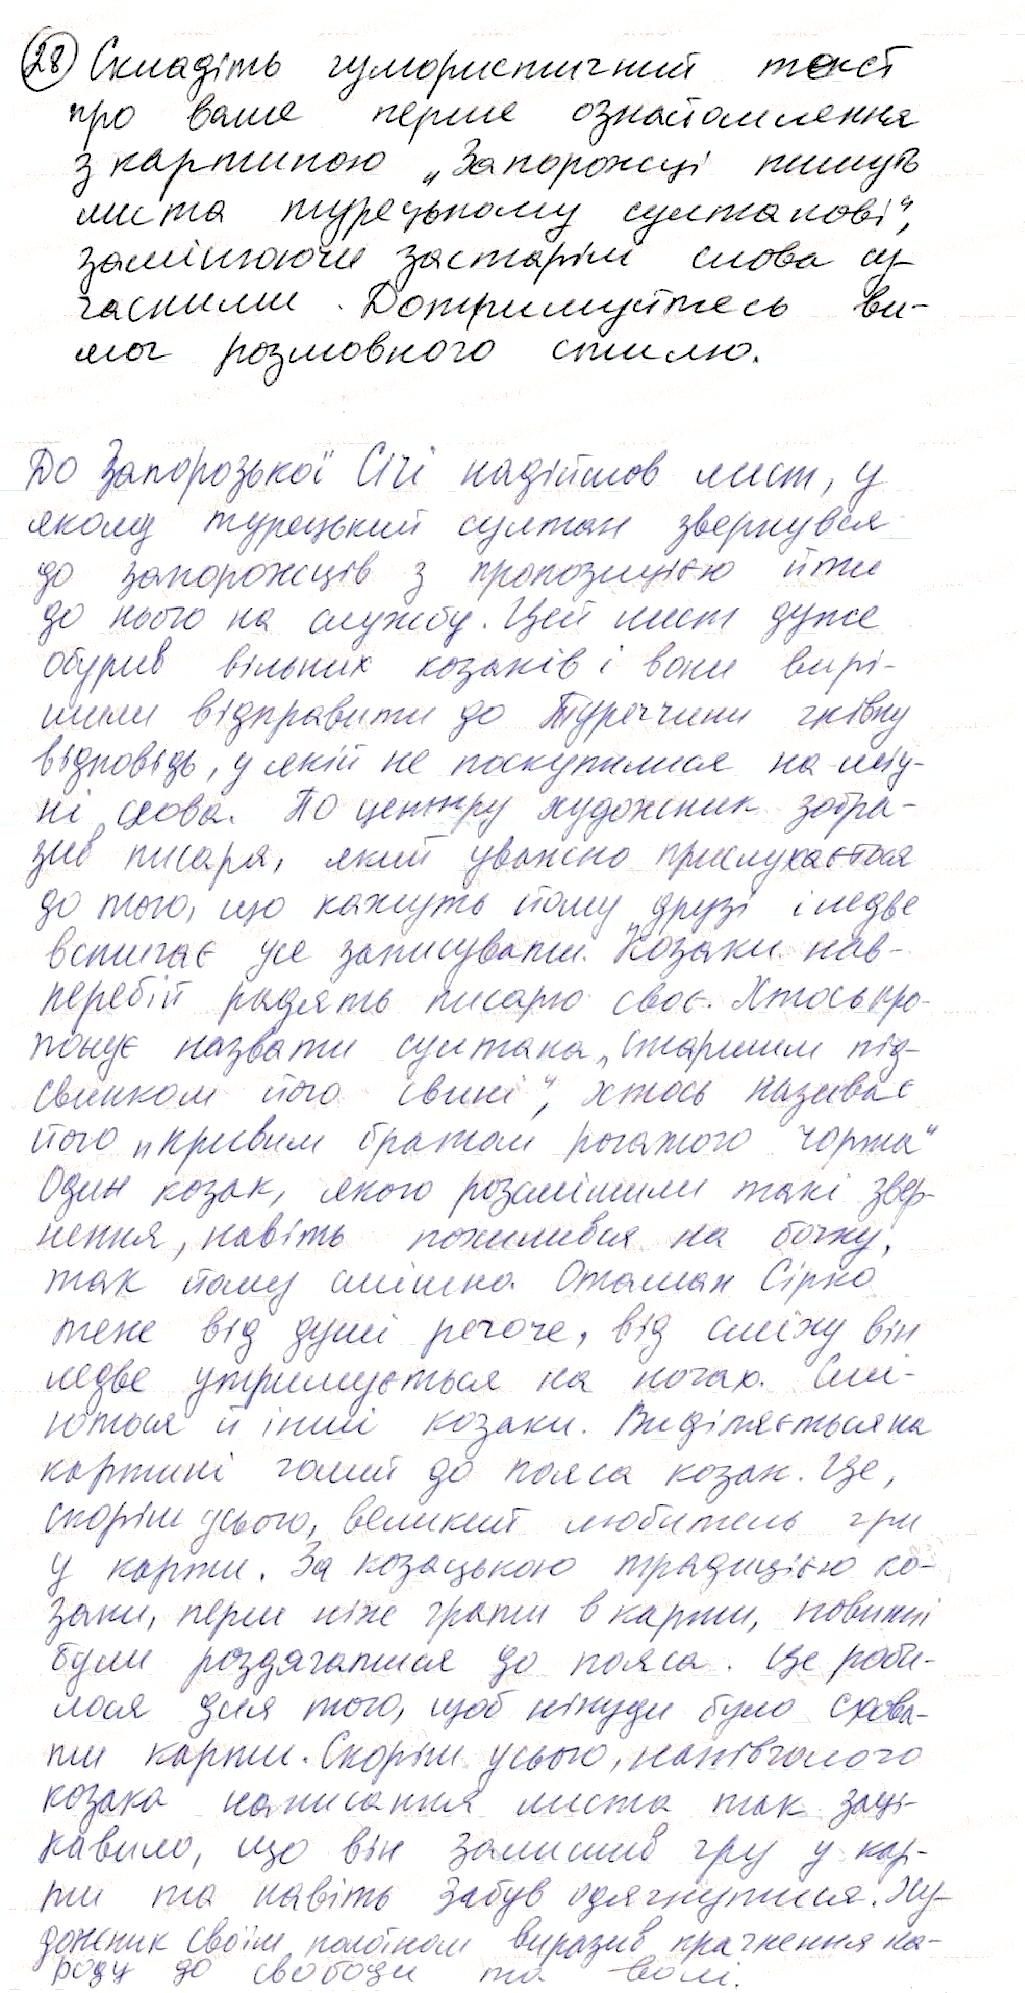 28 Складіть гумористичний текст
про ваше перше ознайомлення
з картиною „Запорожці пишуть
листа турецькому султанові",
замінюючи застарілі слова су-
часними. Дотримуйтесь ви-
мог розмовного стилю.
До Запорозької Січі надійшов лист, у
якому турецький султан звернувся
до запорожців з пропозицією йти
до нього на службу. Цей лист дуже
обурив вільних козаків і вони вирі-
шили відправити до Туреччини гнівну
відповідь, у якій не поскупилися на міц-
ні слова. По центру художник зобра-
зив писаря, який уважно прислухається
до того, що кажуть йому друзі і ледве
встигає усе записувати. Козаки нав-
перебій радять писарю своє. Хтось про-
понує назвати султана „старшим під-
свинком його свині", хтось називає
його „кривим братом рогатого чорта"
Один козак, якого розсмішили такі звер-
нення, навіть похилився на бочку,
так йому смішно. Отаман Сірко
теж від душі регоче, від сміху він
ледве утримується на ногах. Смі-
ються й інші козаки. Виділяється на
картині голий до пояса козак. Це,
скоріш усього, великий любитель гри
у карти. За козацькою традицією ко-
заки, перш ніж грати в карти, повинні
були роздягатися до пояса. Це роби-
лося для того, щоб нікуди було схова-
ти карти. Скоріш усього, напівголого
козака написання листа так заці-
кавило, що він залишив гру у кар-
ти та навіть забув одягнутися. Ху-
дожник своїм полотном виразив прагнення на-
роду до свободи та волі.